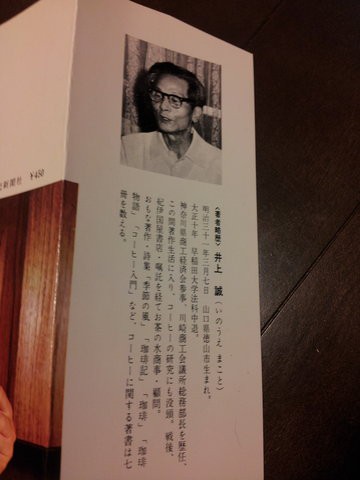 〈著者略歴〉井上 誠(いのうえ まこと)
明治三十一年三月七日 山口県徳山市生まれ。
大正十年、早稲田大学法科中退。
神奈川県商工経済会参事、川崎商工会議所総務部長を歴任、
この間著作生活に入り、コーヒーの研究にも没頭。戦後、
紀伊国屋書店・嘱託を経てお茶の水商事・顧問。
おもな著作・詩集「季節の風」 「珈琲記」「珈琲」「珈琲
物語」「コーヒー入門」など、コーヒーに関する著書は七
冊を数える。
新聞社 ¥450